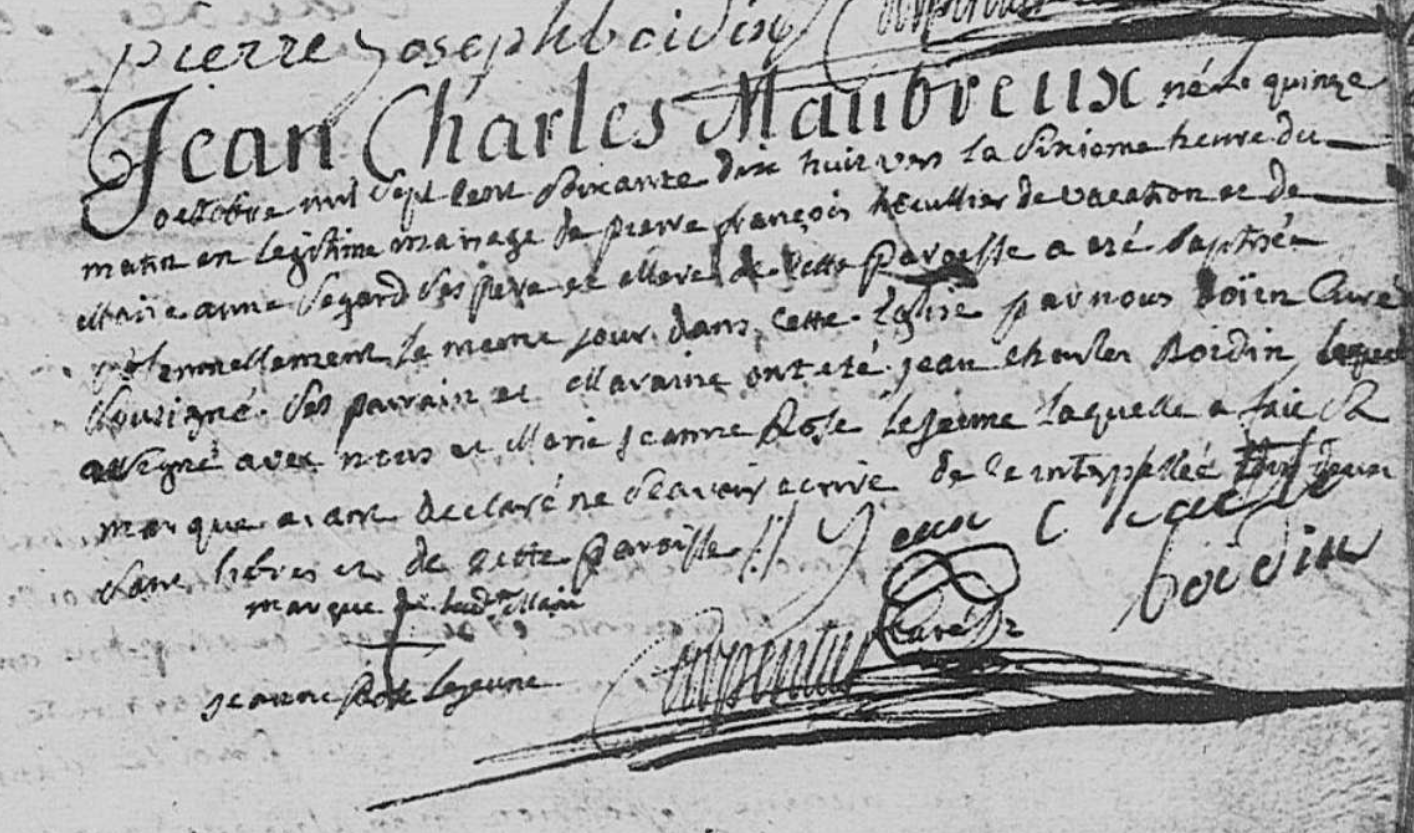 pierre Joseph boidin
Jean Charles Maubreux né le quinze
octobre mil sept cent soixante dix huit vers la sixieme heure du
matin en legitime mariage de pierre françois hœuillier de vacation et de
Marie anne Segard ses pere et Mere de cette paroisse a eté baptisée
solemnellement le meme jour dans cette Eglise par nous doïen Curé
sousigné. Ses parrain et Maraine ont eté jean charles Boidin lequel
a signé avec nous et Marie jeanne Rose lejeune laquelle a fait sa
marque aiant declaré ne sçavoir ecrire de ce interpellée tous deux
libres et de cette paroisse //
Jean Charle
boidin
marque de Marie
jeanne Rose Lejeune
Curé